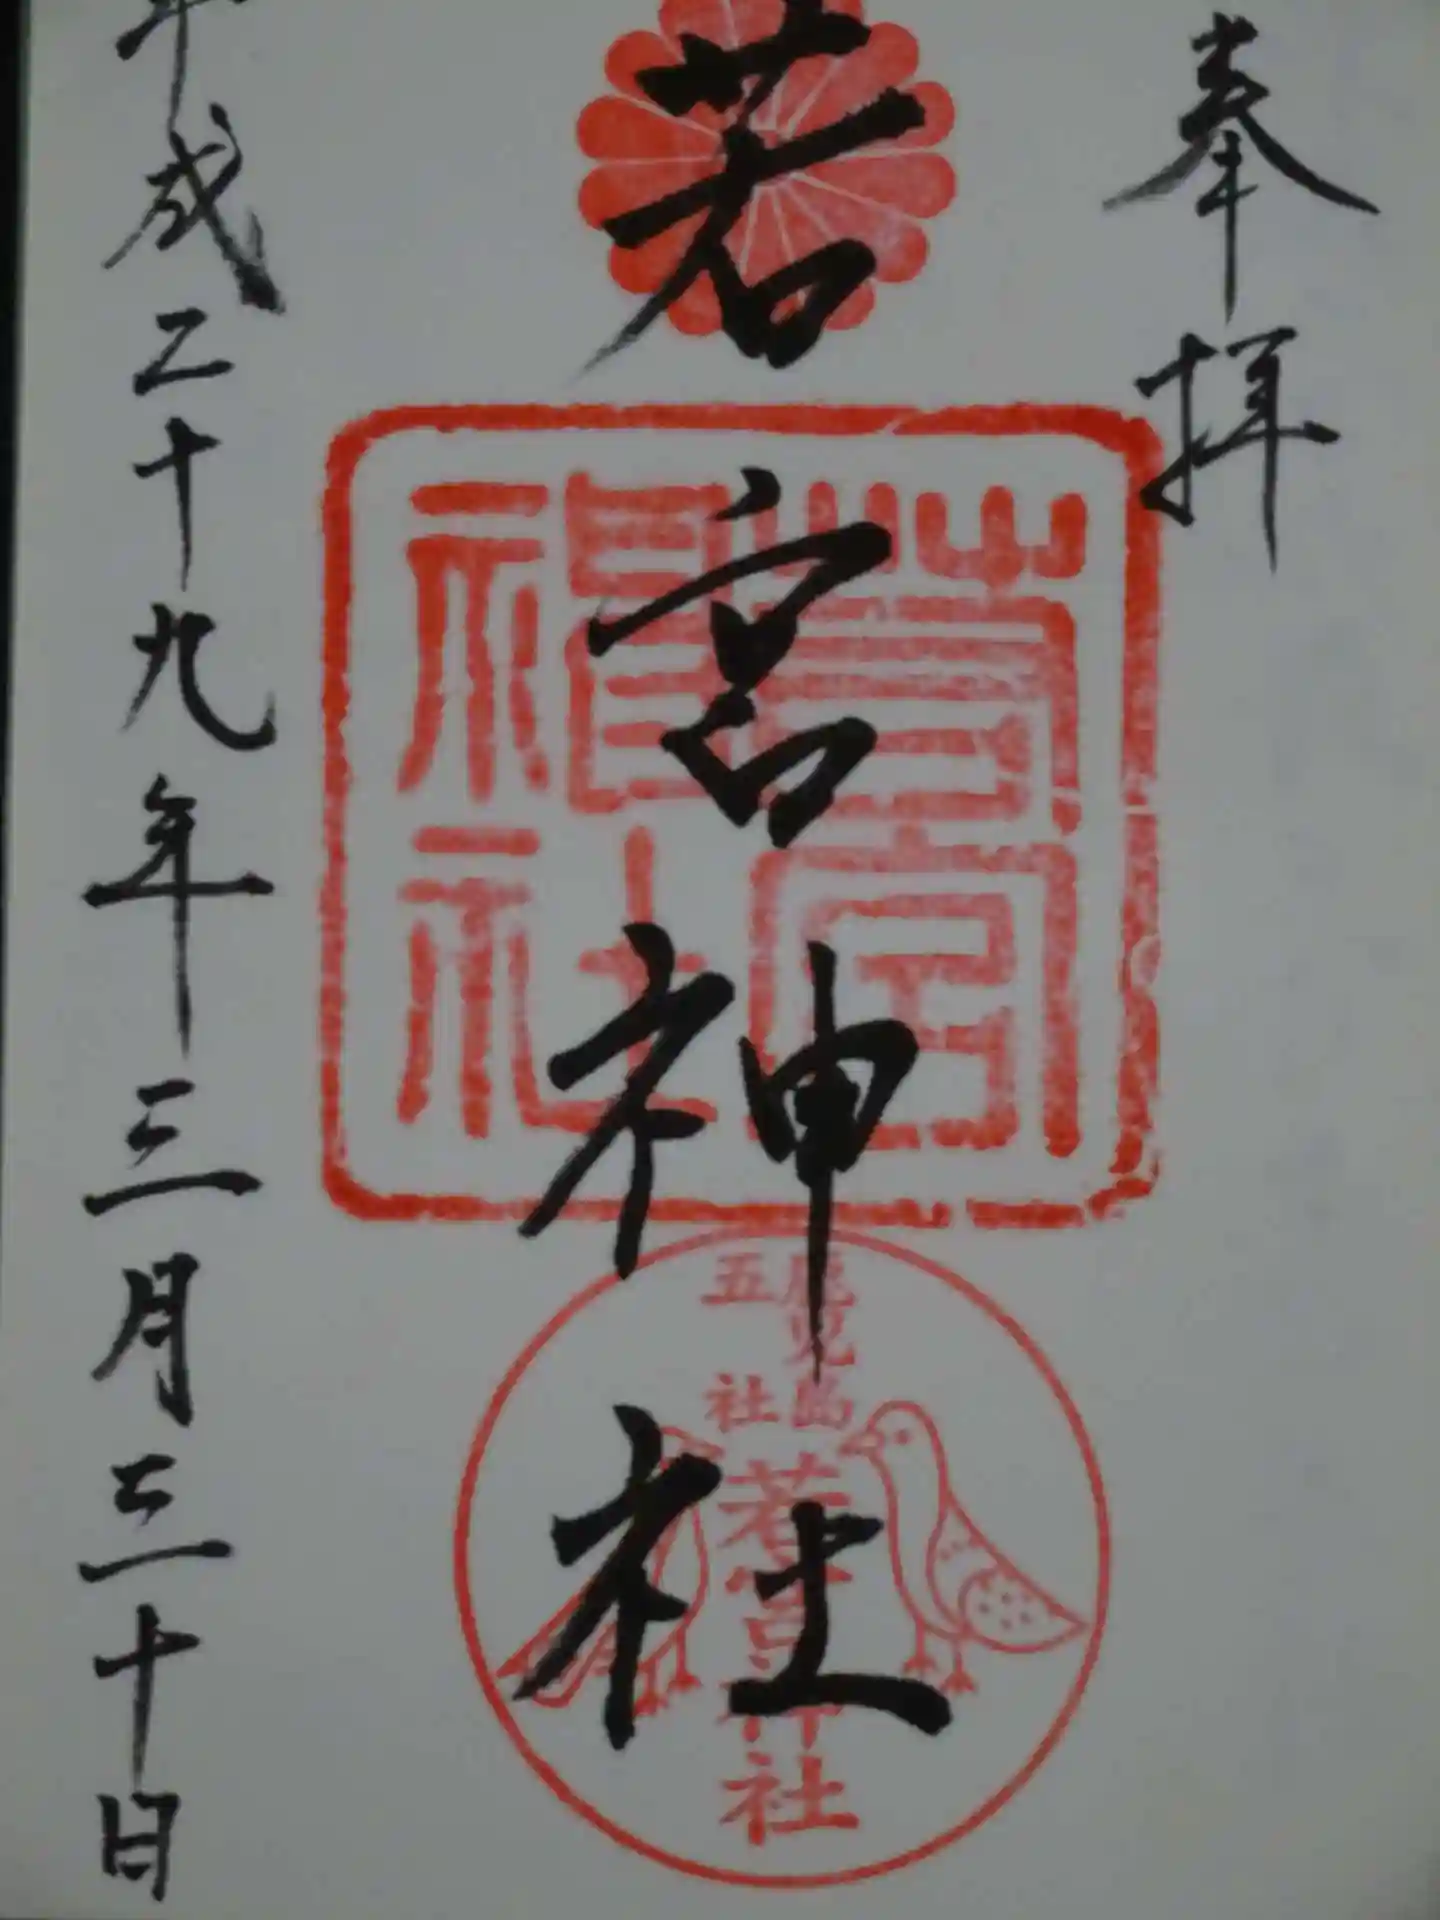 奉拝
若宮神社
平成二十九年三月三十日
若宮
神社
鹿児島
五社
若宮神社